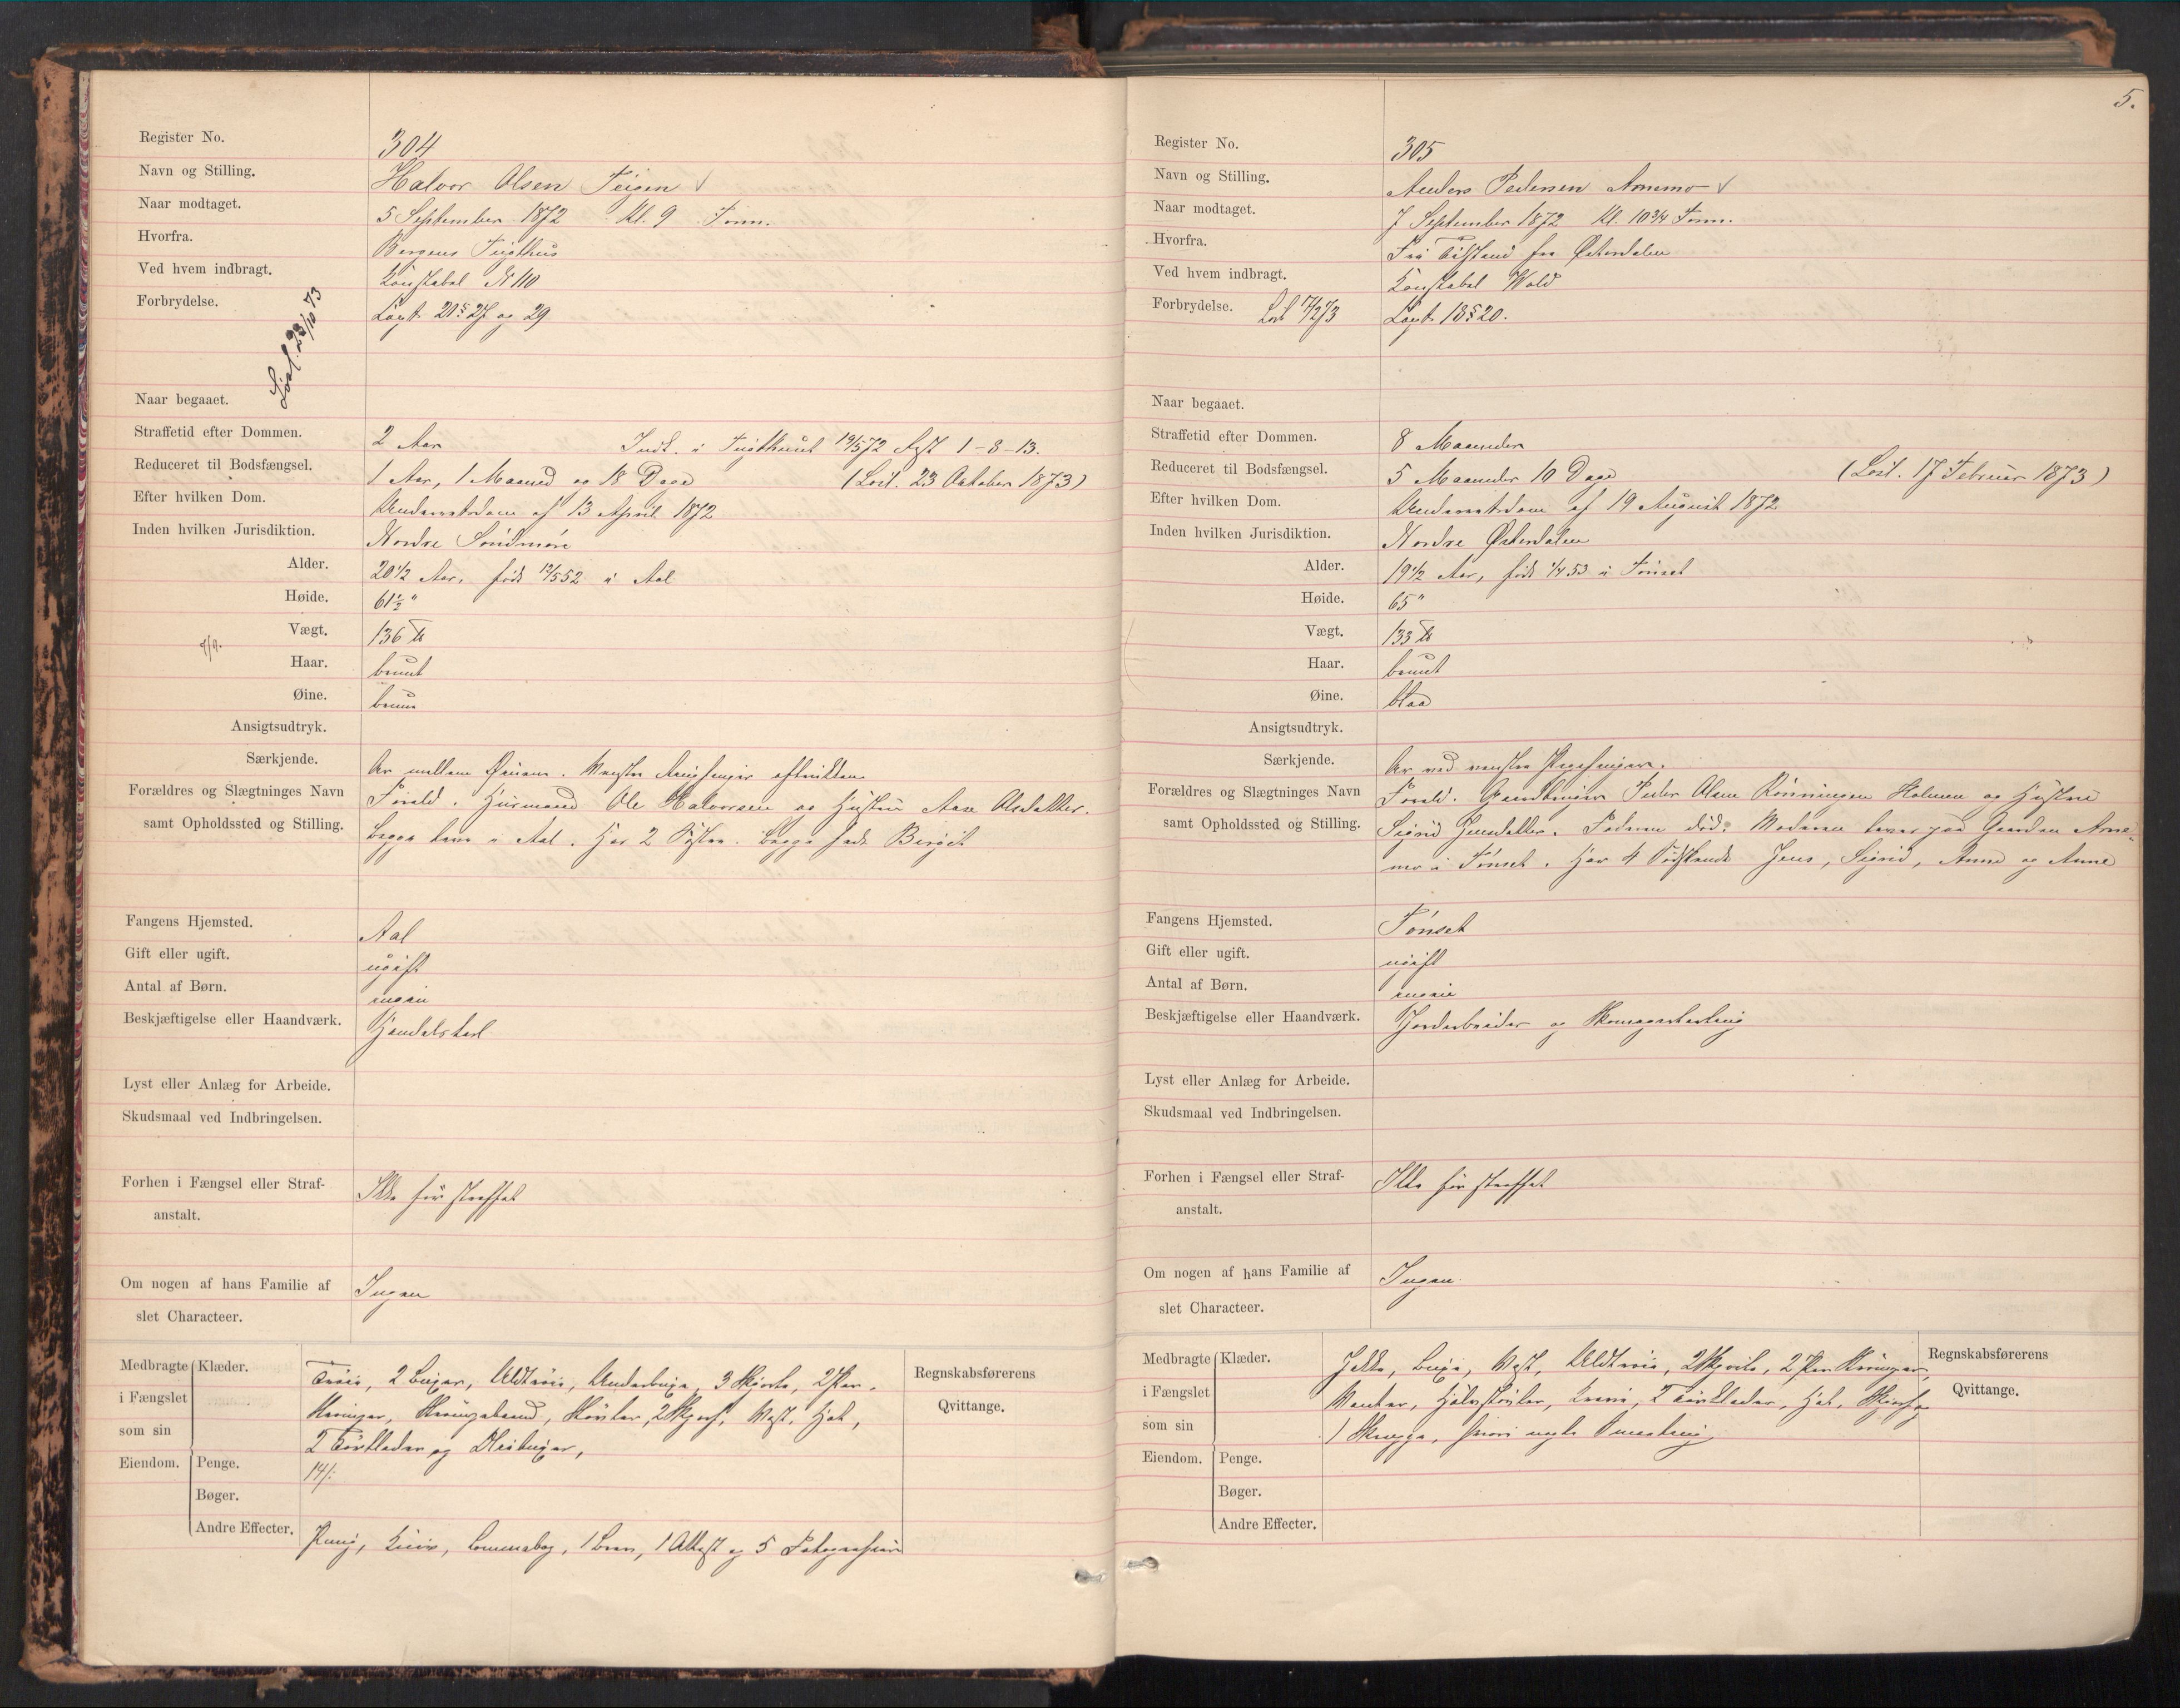 Register No. 304
Navn og Stilling. Halvor Olsen Teigen √
Naar modtaget. 5 September 1872 Kl. 9 Form.
Hvorfra. Bergens Tugthus
Ved hvem indbragt. Konstabel N 110
Forbrydelse. Løsl. 23/10 73 Lovb. 20 § 27 og 29
Naar begaaet.
Straffetid efter Dommen. 2 Aar Inds. i Tugthuset 19/5 72 Rest 1-8-13.
Reduceret til Bodsfængsel. 1 Aar, 1 Maaned og 18 Dage (Løsl. 23 Oktober 1873)
Efter hvilken Dom. Underretsdom af 13 April 1872
Inden hvilken Jurisdiktion. Nordre Søndmøre
Alder. 20 1/2 Aar, født 12/5 52 i Aal
Høide. 61 1/2 "
Vægt. 136 ℔
Haar. brunt
Øine. brune
Ansigtsudtryk.
Særkjende. Ar mellem Øinene. Venstre
Forældres og Slægtninges Navn Foræld. Husmand Ole Halvorsen og Hustru Aase Olsdatter.
samt Opholdssted og Stilling. begge leve i Aal. Har 2 Søstre. begge hede Birgit
Fangens Hjemsted. Aal
Gift eller ugift. ugift
Antal af Børn. ingen
Beskjæftigelse eller Haandværk. Handelskarl
Lyst eller Anlæg for Arbeide.
Skudsmaal ved Indbringelsen.
Forhen i Fængsel eller Straf- Ikke før straffet
anstalt.
Om nogen af hans Familie af Ingen
slet Characteer.
Medbragte Klæder. Trøie, 2 Buxer, Uldtrøie, Underbuxe, 3 Skjorte, 2 Par
i Fængslet Strømper, Strømpebaand, Støvler, 2 Skjerf, Vest, Hat,
som sin 2 Tørklæder og
Eiendom. Penge. 14/:
Bøger.
Andre Effecter. Pung, Kniv, Commebog, 1 Brev, 1 Attest og 5 Fotografier
Regnskabsførerens
Qvittange.
5.
Register No. 305
Navn og Stilling. Anders Pedersen Arnemo √
Naar modtaget. 7 September 1872 Kl. 10 3/4 Form.
Hvorfra. Fra Tilstand fra Østerdalen
Ved hvem indbragt. Konstabel Wold
Forbrydelse. Løsl 17/2 73 Lovb. 18 § 20.
Naar begaaet.
Straffetid efter Dommen. 8 Maaneder
Reduceret til Bodsfængsel. 5 Maaneder 10 Dage (Løsl. 17 Februar 1873)
Efter hvilken Dom. Underretsdom af 19 August 1872
Inden hvilken Jurisdiktion. Nordre Østerdalen
Alder. 19 1/2 Aar, født 1/4 53 i Tønset
Høide. 65 "
Vægt. 133 ℔
Haar. brunt
Øine. blaa
Ansigtsudtryk.
Særkjende. Ar ved venstre Pegefinger.
Forældres og Slægtninges Navn Foræld. Gaardbruger Peder Olsen Rønningen Holmen og Hustru
samt Opholdssted og Stilling. Sigrid Jensdatter. Faderen død. Moderen lever paa Gaarden Arne-
mo i Tønset. Har 4 Sødskende Jens, Sigrid, Anne og Anne
Fangens Hjemsted. Tønset
Gift eller ugift. ugift
Antal af Børn. ingen
Beskjæftigelse eller Haandværk. Jordarbeider og Skomagerlærling
Lyst eller Anlæg for Arbeide.
Skudsmaal ved Indbringelsen.
Forhen i Fængsel eller Straf- Ikke før straffet
anstalt.
Om nogen af hans Familie af Ingen.
slet Characteer.
Medbragte Klæder. Jakke, Buxe, Vest, Uldtrøie, 2 Skjorte, 2 Par Strømper,
i Fængslet Vanter, Halvstøvler, 2 Tørklæder, Hat, Skjerf og
som sin 1 Skreppe, hvori
Eiendom. Penge.
Bøger.
Andre Effecter.
Regnskabsførerens
Qvittange.